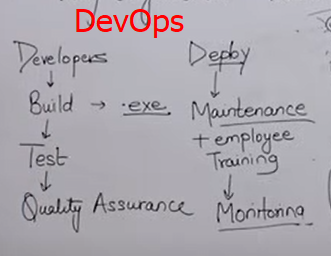 DevOps
Developers
↓
Build → .exe
↓
Test
↓
Quality Assurance
Deploy
↓
Maintenance
+ employee
Training
↓
Monitoring